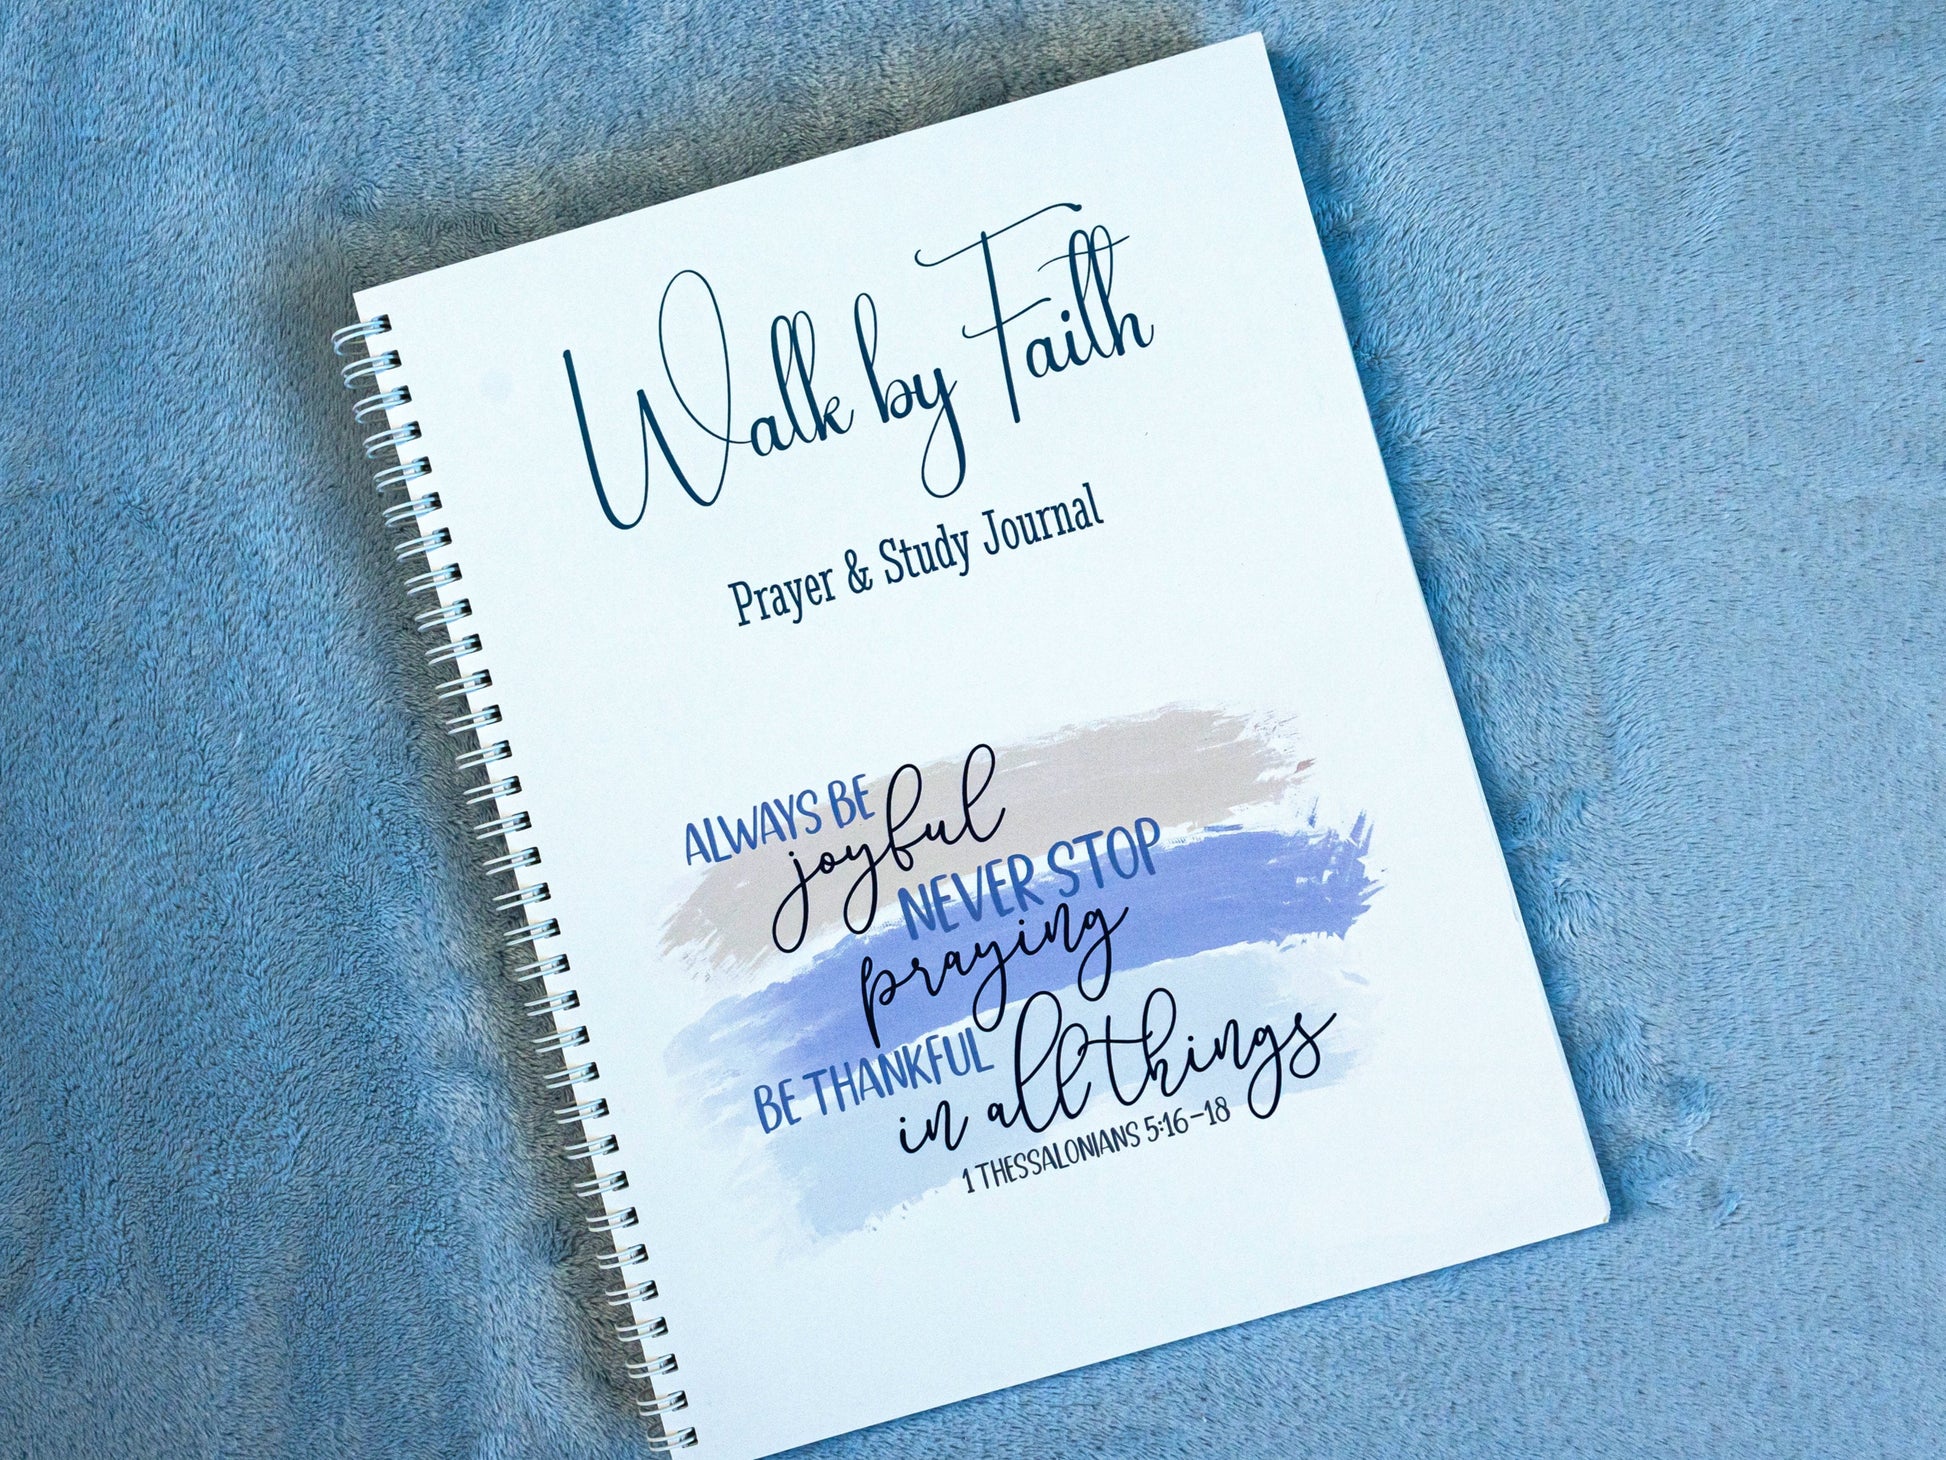 Walk by Faith
Prayer & Study Journal
ALWAYS BE
joyful
NEVER STOP
praying
BE THANKFUL
in all things
1 THESSALONIANS 5:16-18